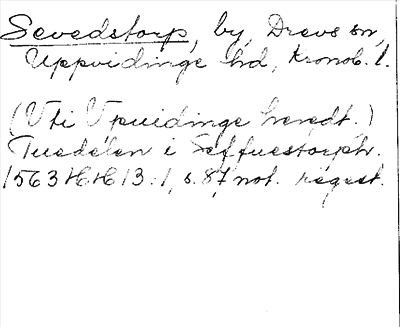 Sevedstorp, by, Drevs sn,
Uppvidinge hd, Kronob. l.
(Vti Vpuidinge heredt.)
Tuedelen i Seffuestorph.
1563 HH 13:1, s. 87, not. regest.